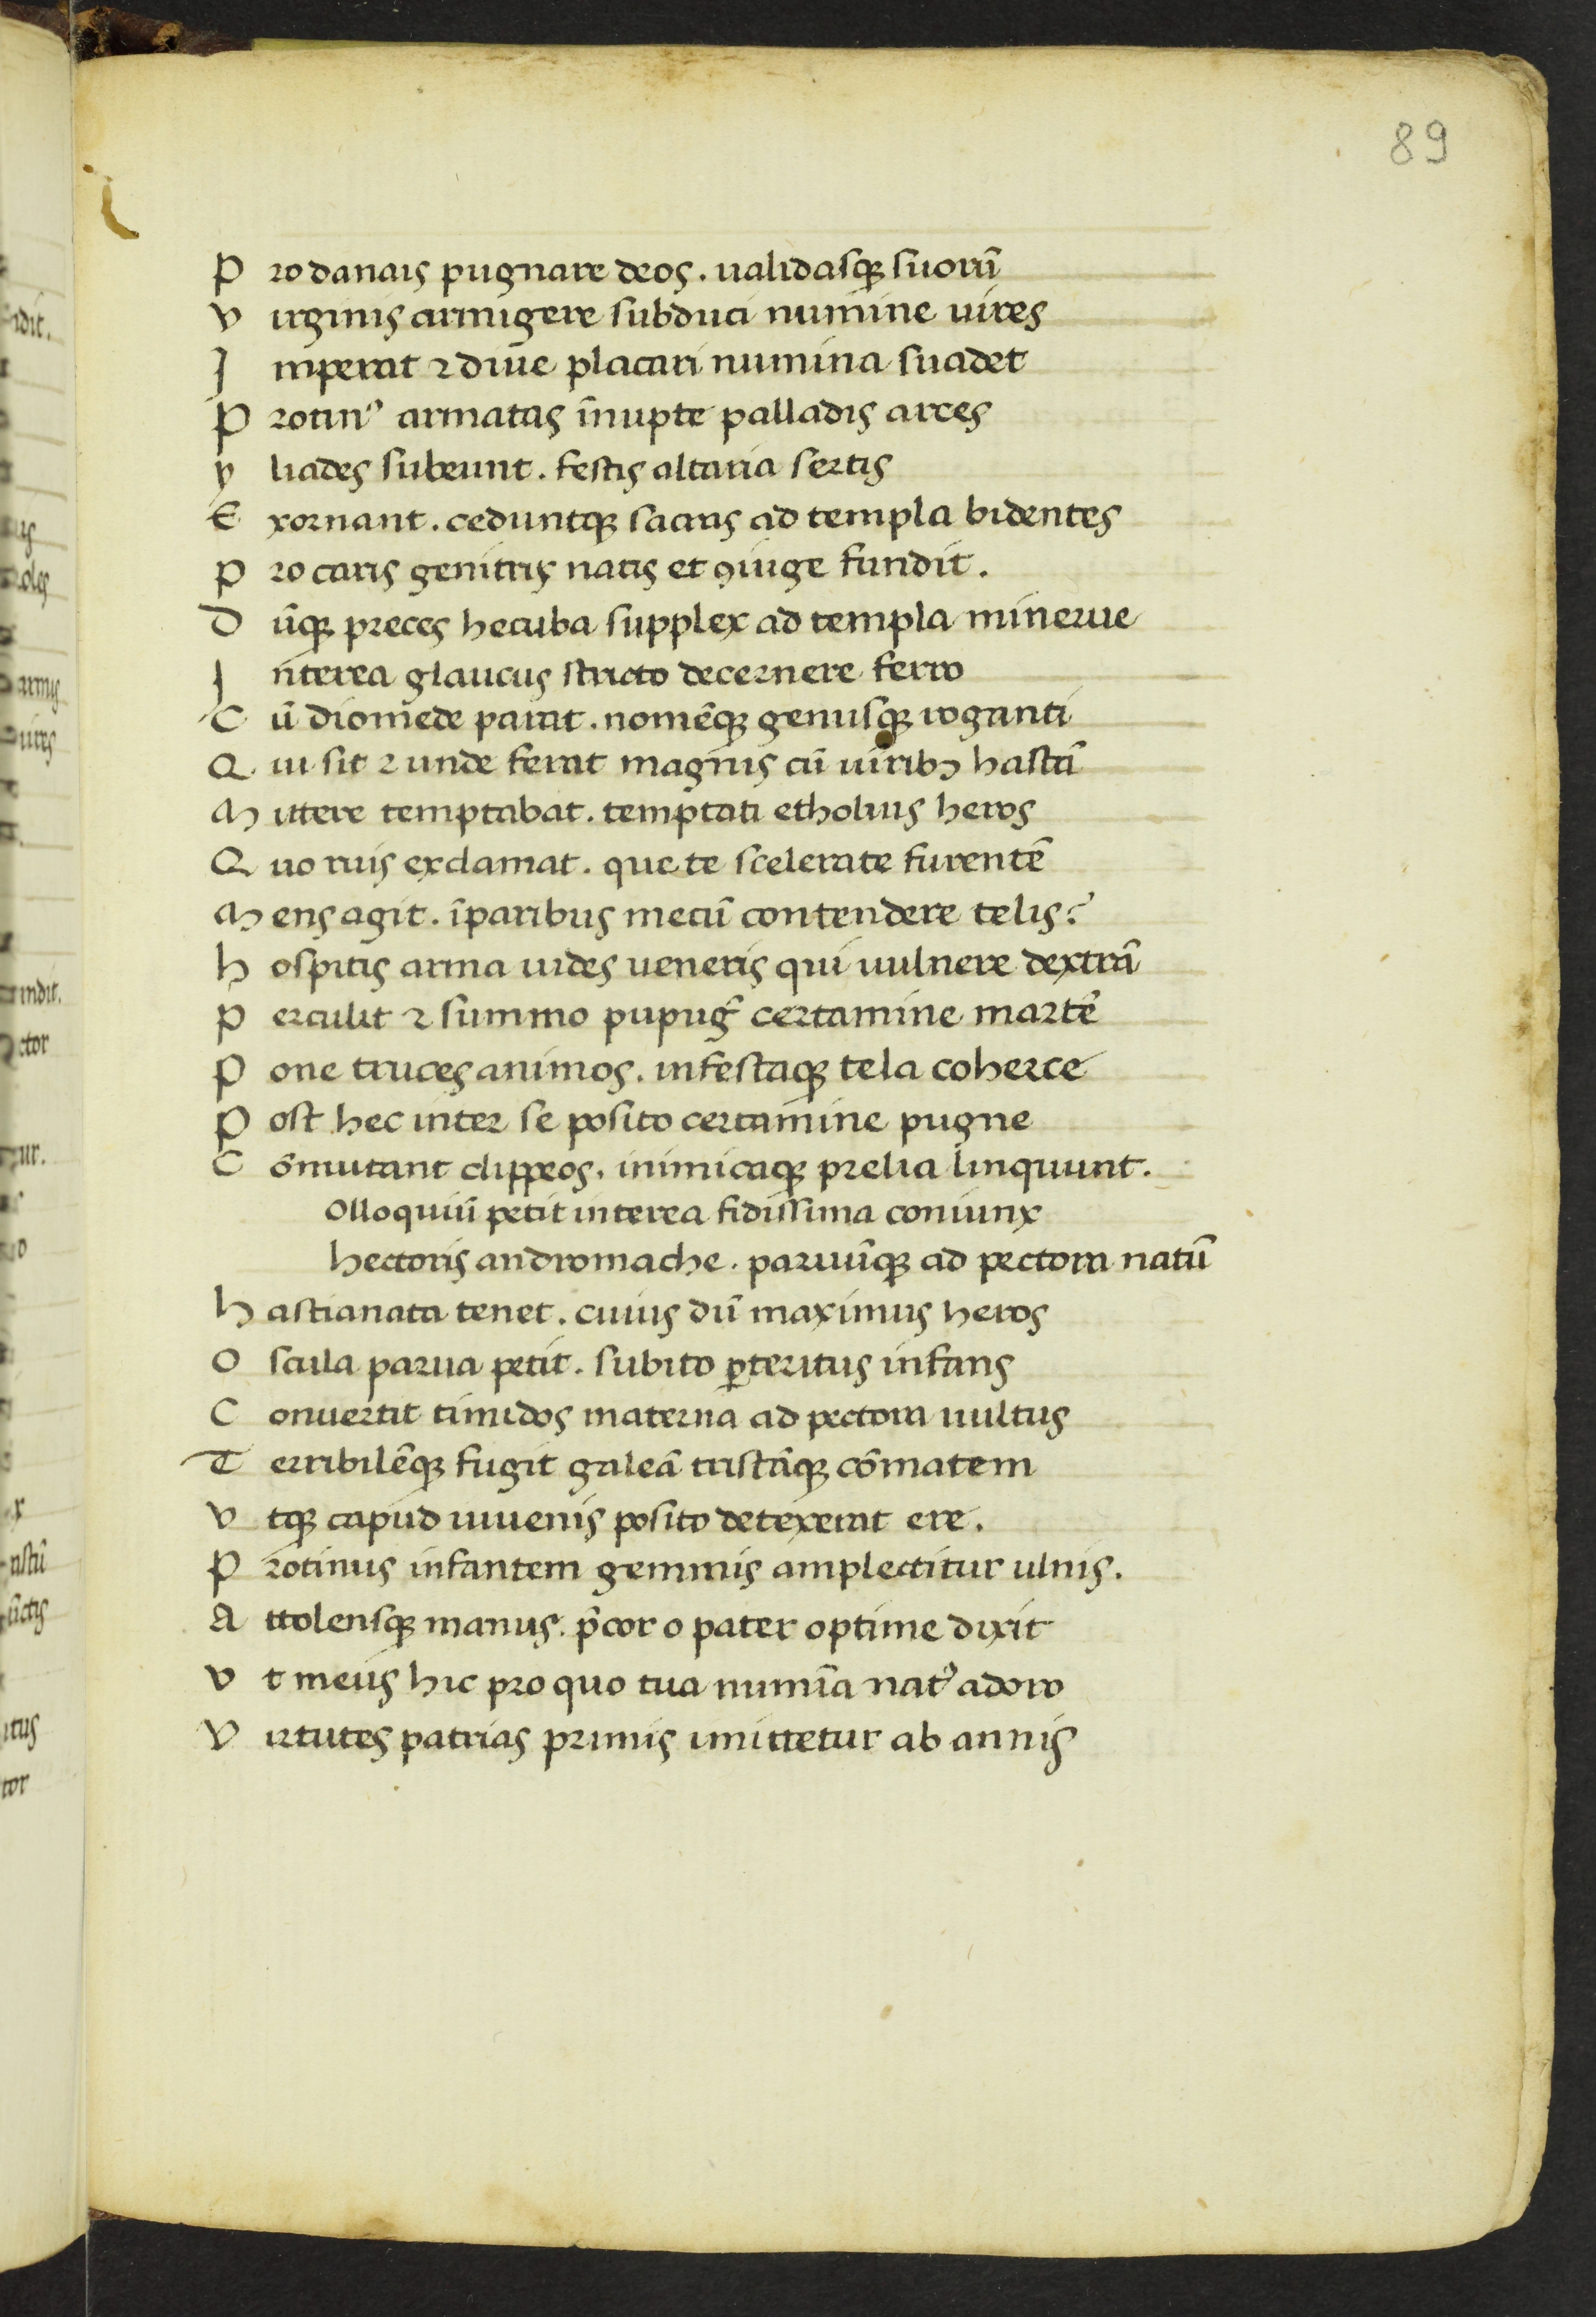 89
P ro danais pugnare deos. ualidasq; suorū
V irginis armigere subduci numine uires
I mperat ⁊ diue placari numina suadet
P rotinꝰ armatas īnupte palladis arces
y liades subeunt. festis altaria sertis
E xornant. ceduntq; sacras ad templa bidentes
P ro caris genitris natis et ꝯiuge fundit.
D ūq; preces hecuba supplex ad templa minerue
I nterea glaucus stricto decernere ferro
C ū diomede parat. nomēq; genusq; roganti
Q ui sit ⁊ unde ferat magnis cū uiribꝫ hastā
M ittere temptabat. temptati etholius heros
Q uo ruis exclamat. que te scelerate furentē
M ens agit. īparibus mecū contendere telis?
h ospitis arma uides ueneris qui uulnere dextrā
P erculit ⁊ summo pupug̃ certamine martē
P one truces animos. infestaq; tela coherce
P ost hec inter se posito certamine pugne
C ōmutant clippeos. inimicaq; prelia linquunt.
Olloquiū petit interea fidissima coniunx
hectoris andromache. paruūq; ad pectora natū
h astianata tenet. cuius dū maximus heros
O scula parua petit. subito ꝑteritus infans
C onuertit timidos materna ad pectora uultus
T erribilēq; fugit galeā cristāq; cōmatem
V tq; capud iuuenis posito detexerat ere.
P rotinus infantem gemmis amplectitur ulnis.
A ttolensq; manus. p̄cor o pater optime dixit
V t meus hic pro quo tua numīa natꝰ adoro
V irtutes patrias primis imittetur ab annis